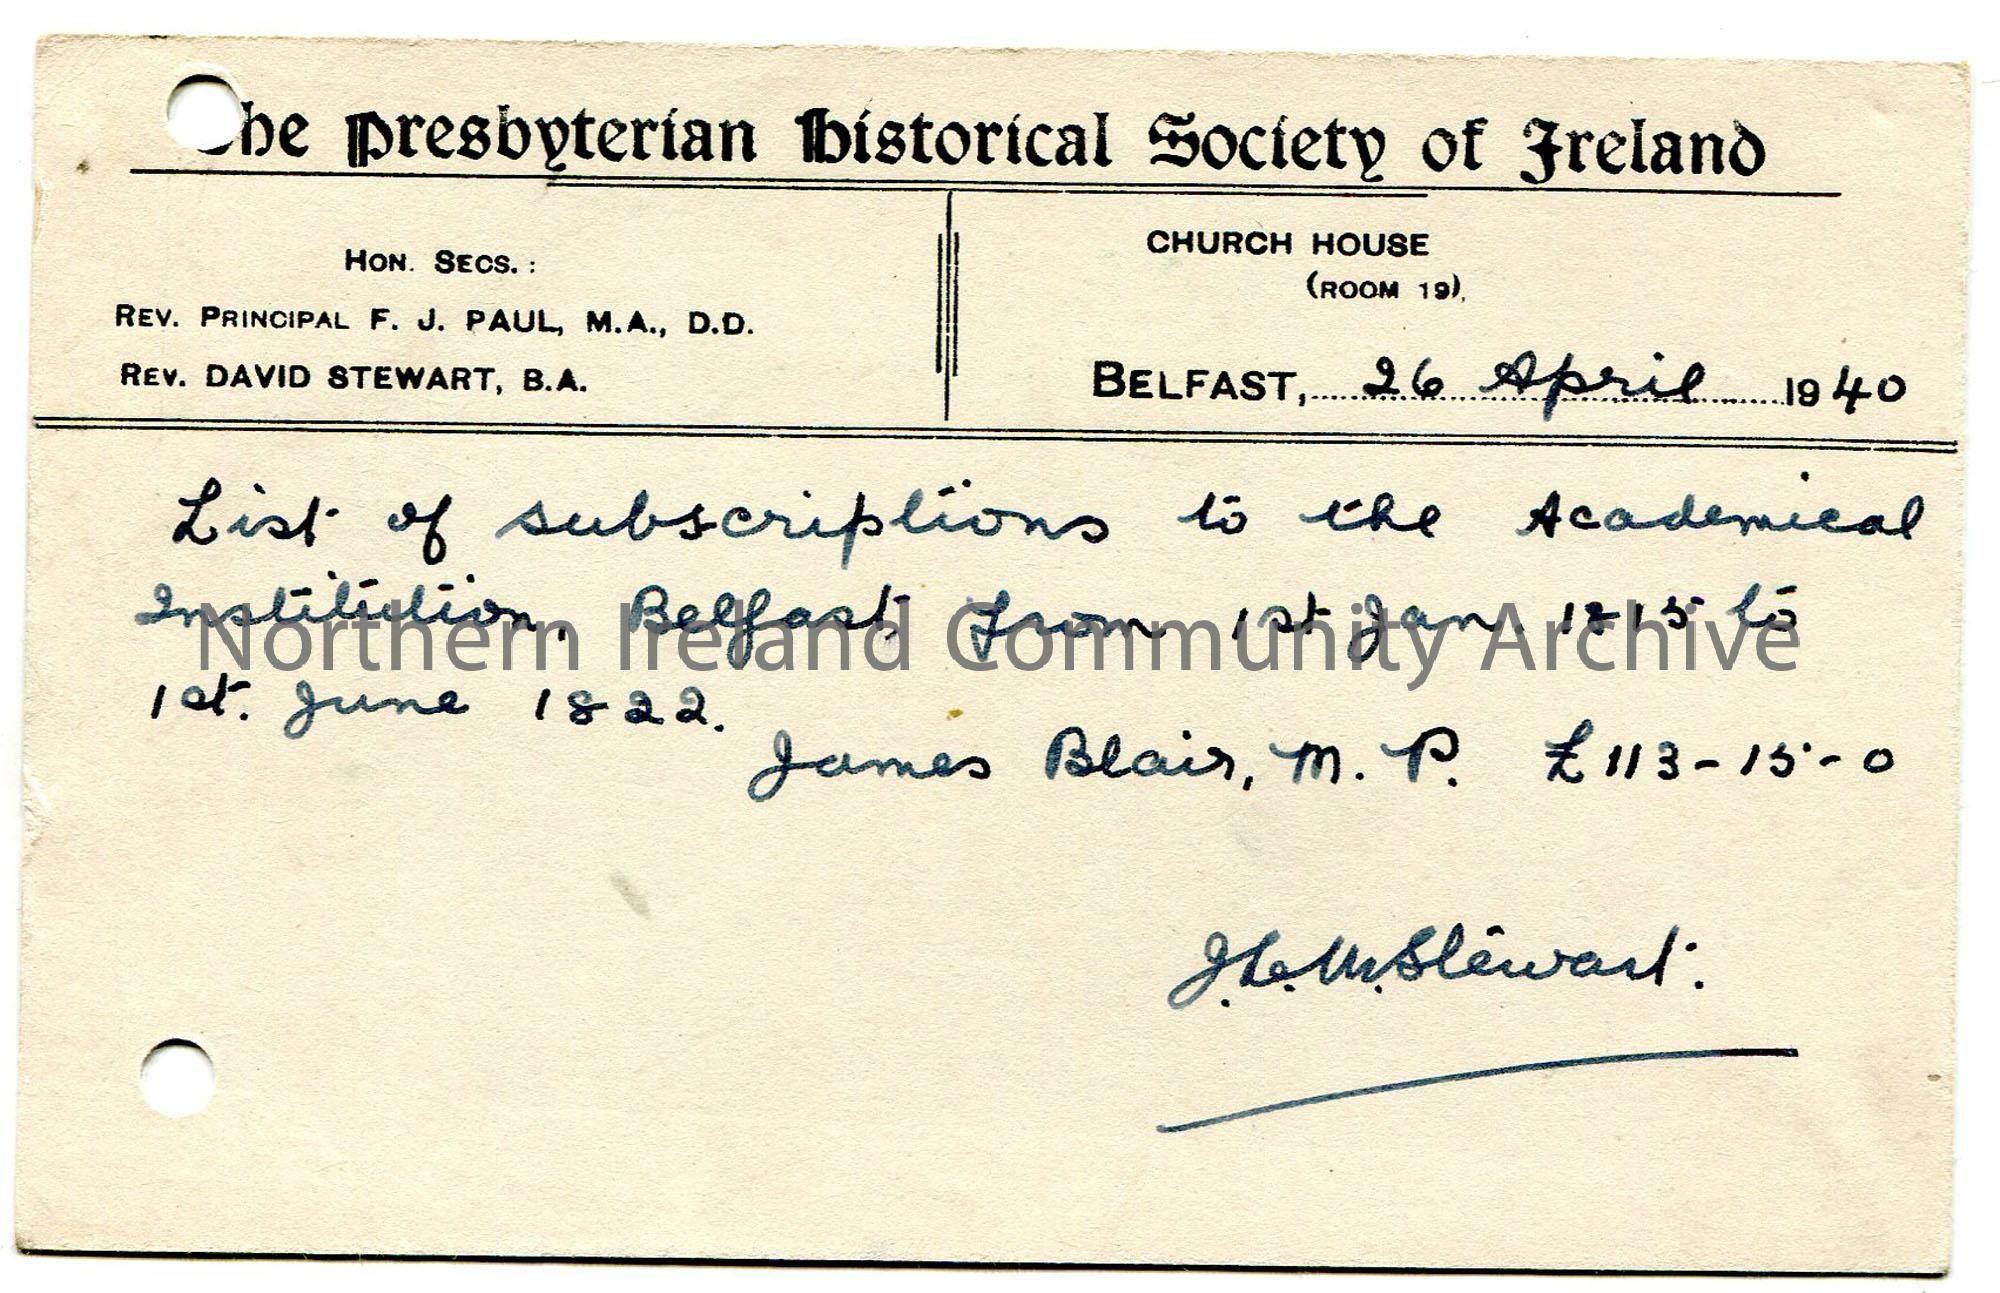 The Presbyterian Historical Society of Ireland
HON. SECS. :
REV. PRINCIPAL F. J. PAUL, M.A., D.D.
REV. DAVID STEWART, B.A.
CHURCH HOUSE
(ROOM 19),
BELFAST, 26 April 1940
List of subscriptions to the Academical
Institution, Belfast, from 1st Jan. 1815 to
1st. June 1822.
James Blair, M. P. £113-15-0
Stewart.
Northern Ireland Community Archive